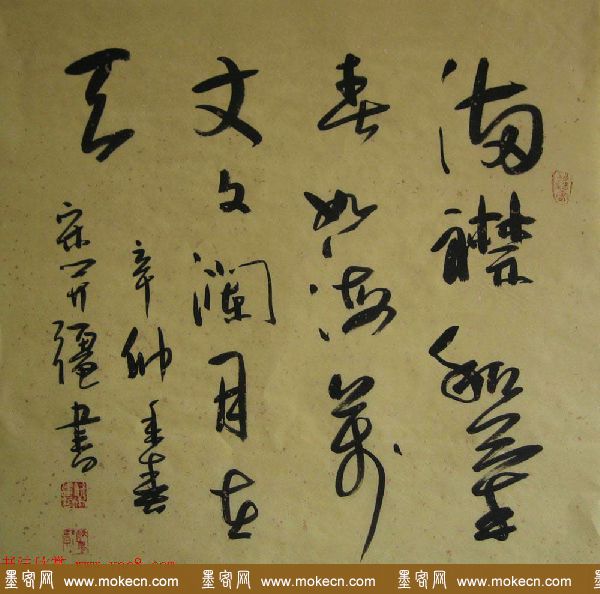 滿襟和氣
春如海萬
丈文瀾月在
天
辛卯年春
宋开疆書
墨客网 www.mokecn.com 墨客网 www.mokecn.com 墨客网 www.mokecn.com